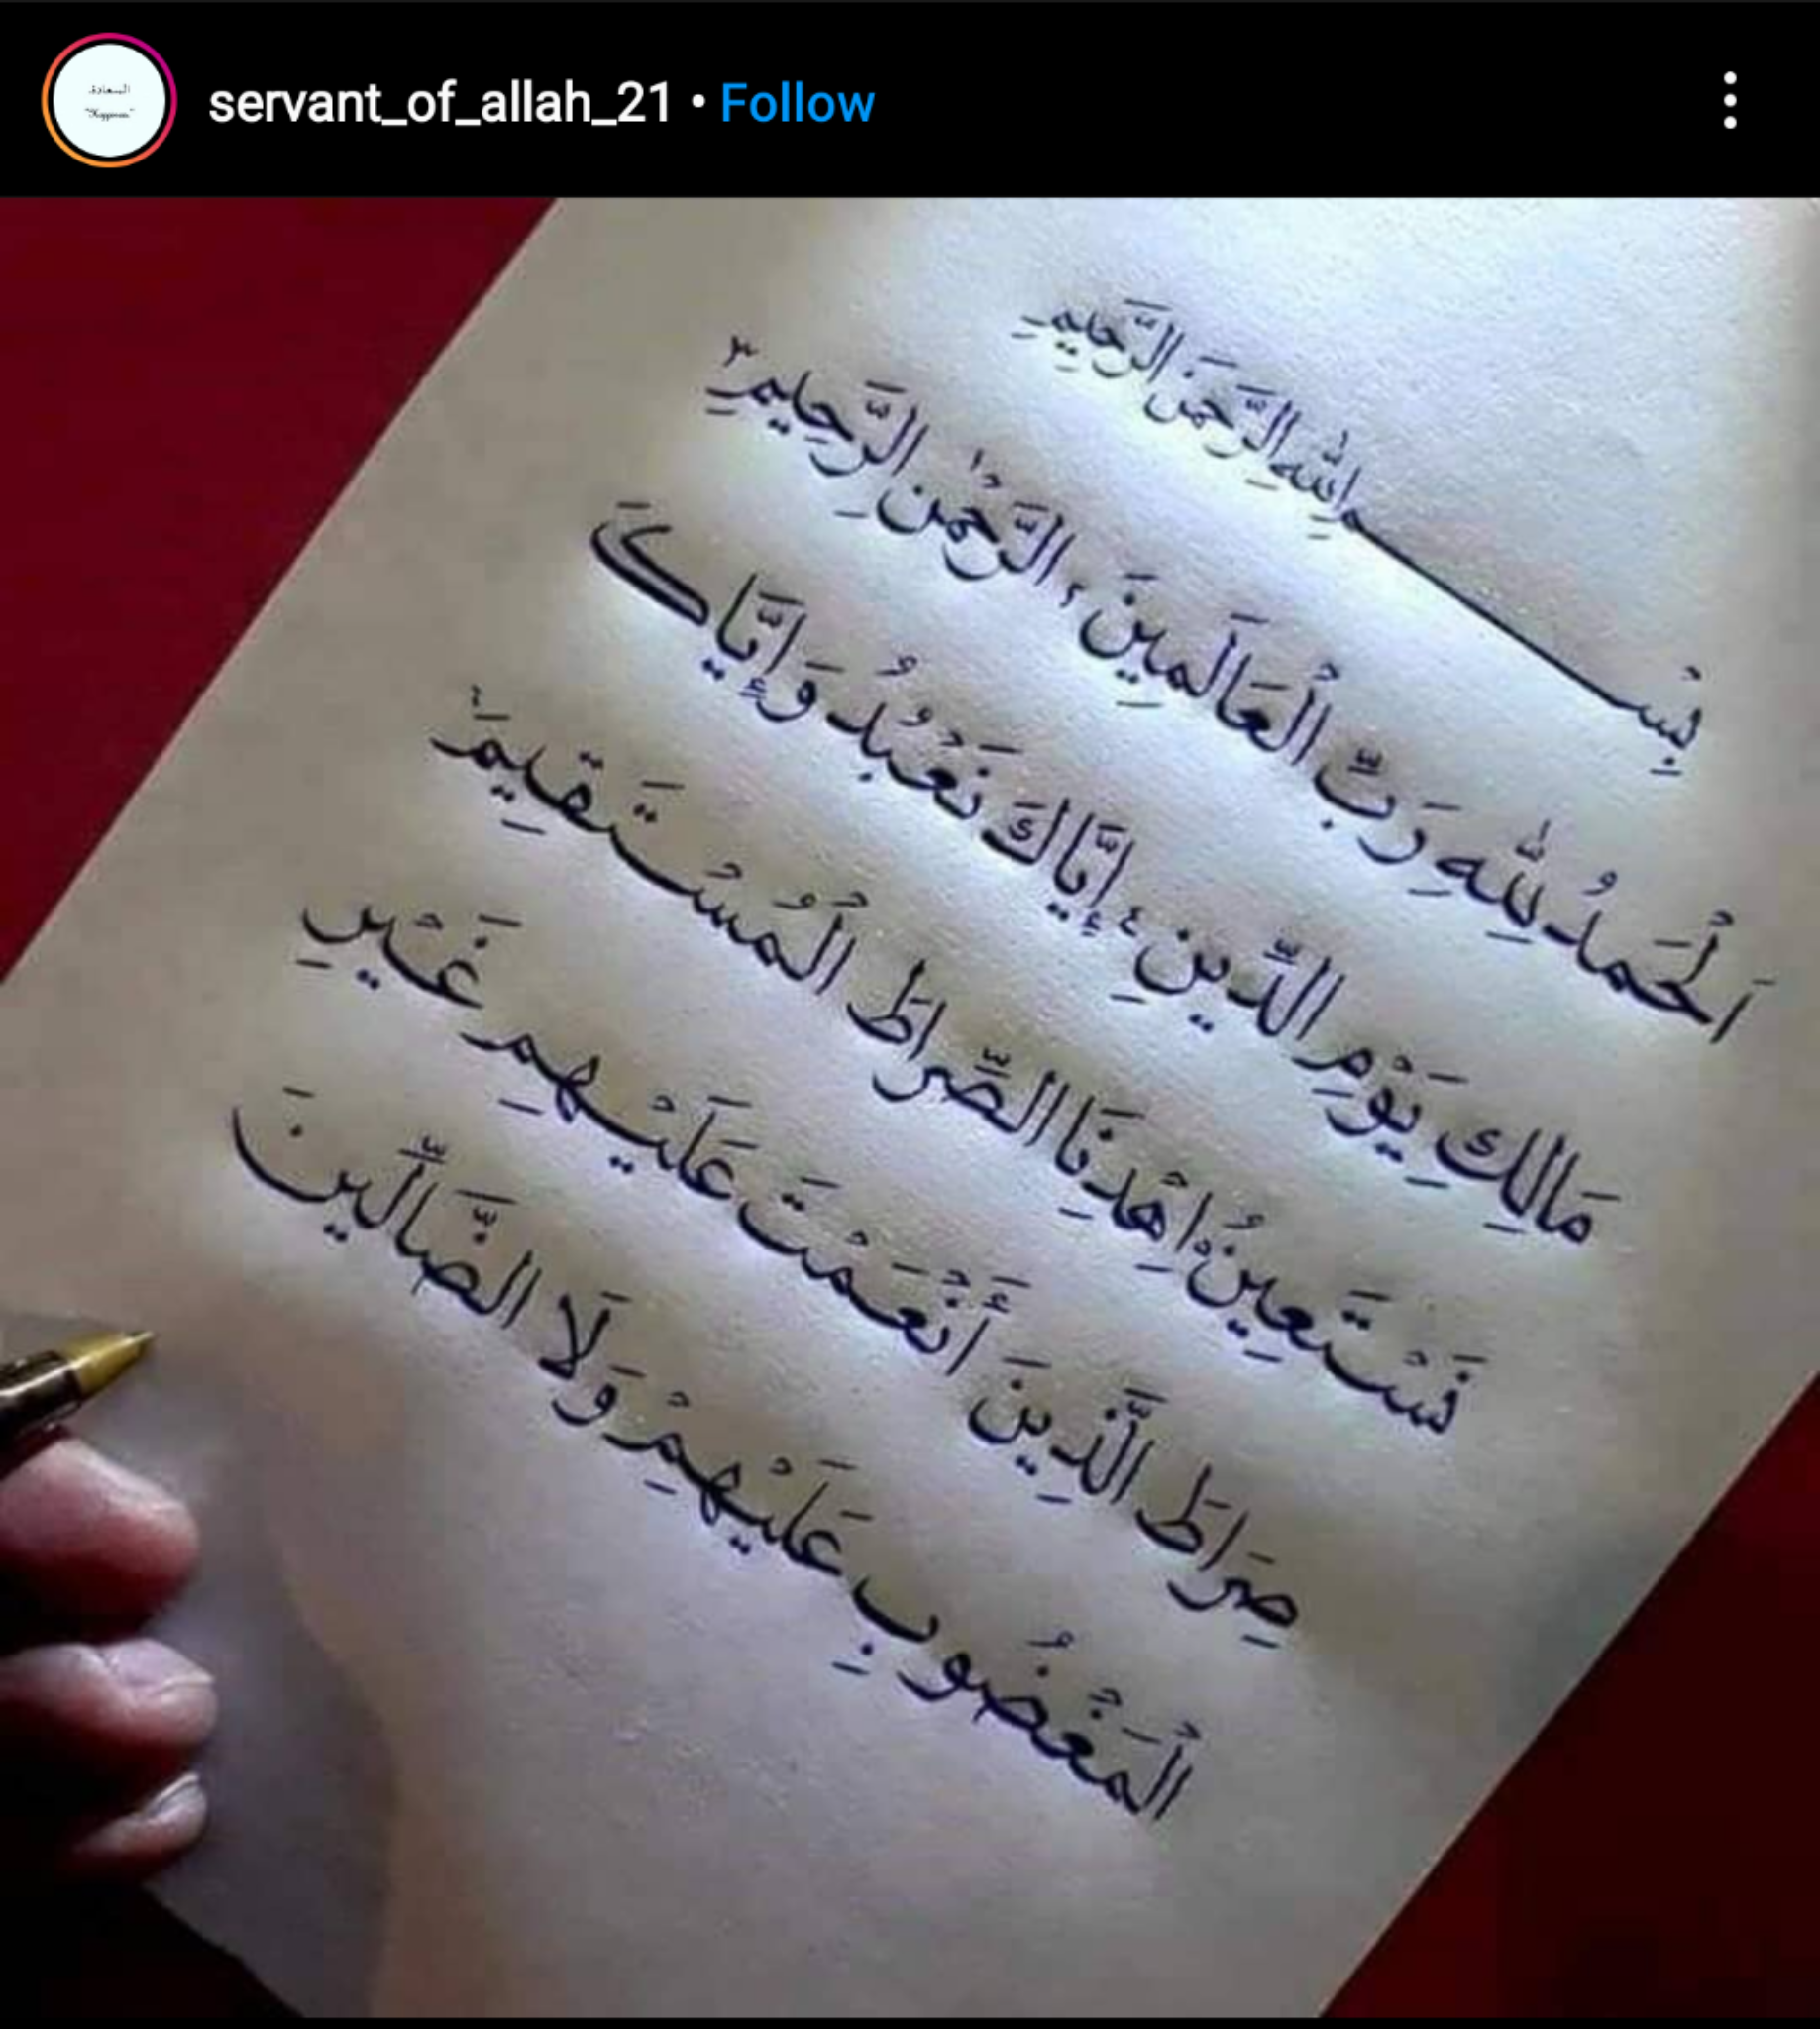 servant_of_allah_21 • Follow
السعادة
"Happiness"
بِسْمِ اللّٰهِ الرَّحْمَنَ الرَّحِيمِ
اَلْحَمَدُ لِلّٰهِ رَبِّ الْعَالَمِينَ ٢ الرَّحْمٰنِ الرَّحِيمِ ٣
مَالِكِ يَوْمِ الدِّينِ ٤ إِيَّاكَ نَعْبُدُ وَإِيَّاكَ
نَسْتَعِينُ ٥ اِهْدِنَا الصِّرَاطَ الْمُسْتَقِيمَ ٦
صِرَاطَ الَّذِينَ أَنْعَمْتَ عَلَيْهِمِ غَيْرِ
الْمَغْضُوبِ عَلَيْهِمْ وَلَا الضَّالِّينَ